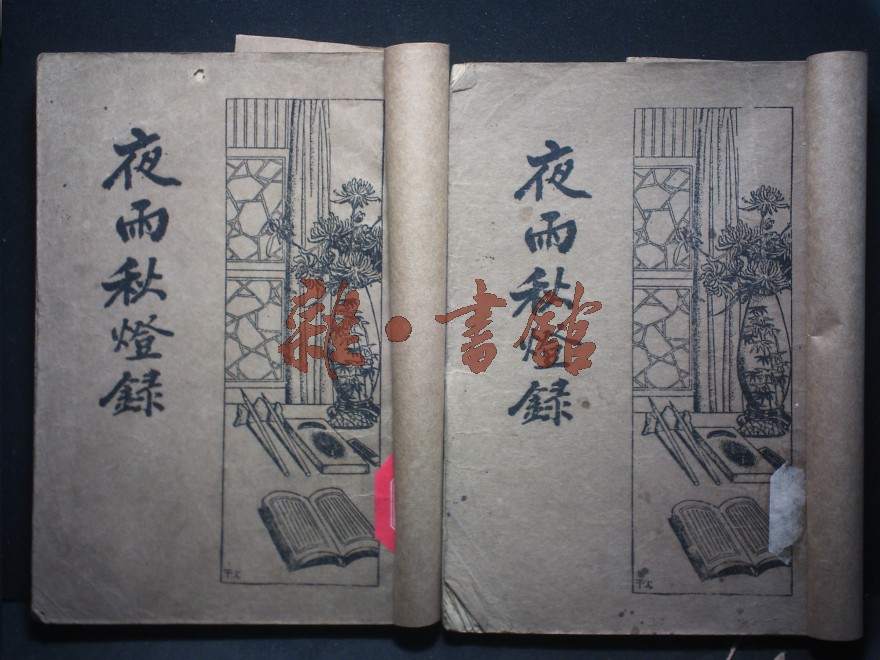 夜雨秋燈録
夜雨秋燈録
雜·書館